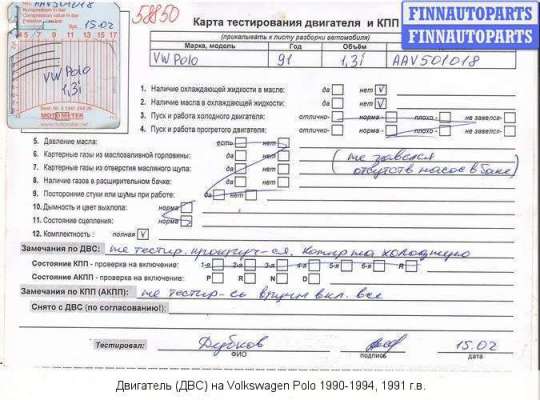 58850
FINNAUTOPARTS
FINNAUTOPARTS
AAV501018
15.02
4 5 7 9 11 13 15 17
VW Polo
1,3i
MOTOMETER
Карта тестирования двигателя и КПП
(прикалывать к листу разборки автомобиля)
Марка, модель Год Объём
VW Polo 91 1,3i AAV501018
1. Наличие охлаждающей жидкости в масле: да нет V
2. Наличие масла в охлаждающей жидкости: да нет V
3. Пуск и работа холодного двигателя: отлично- норма - плохо - не завелся-
4. Пуск и работа прогретого двигателя: отлично- норма - плохо - не завелся-
5. Давление масла: есть нет
6. Картерные газы из маслозаливной горловины: да нет
7. Картерные газы из отверстия масляного щупа: да нет
8. Наличие газов в расширительном бачке: да нет
9. Посторонние стуки или шумы при работе: да нет
(не завелся
отсутств насос в баке)
10. Дымность и цвет выхлопа: норма
11. Состояние сцепления: норма
12. Комплектность : полная V
Замечания по ДВС: не тестир. прокруч-ся, на холодную
Состояние КПП - проверка на включение: 1-я 2-я 3-я 4-я 5-я 6-я R
Состояние АКПП - проверка на включение: P R N D
Замечания по КПП (АКПП): не тестир-сь вручн вкл. все
Снято с ДВС (по согласованию!):
Тестировал: Дубков 15.02
ФИО подпись дата
Двигатель (ДВС) на Volkswagen Polo 1990-1994, 1991 г.в.